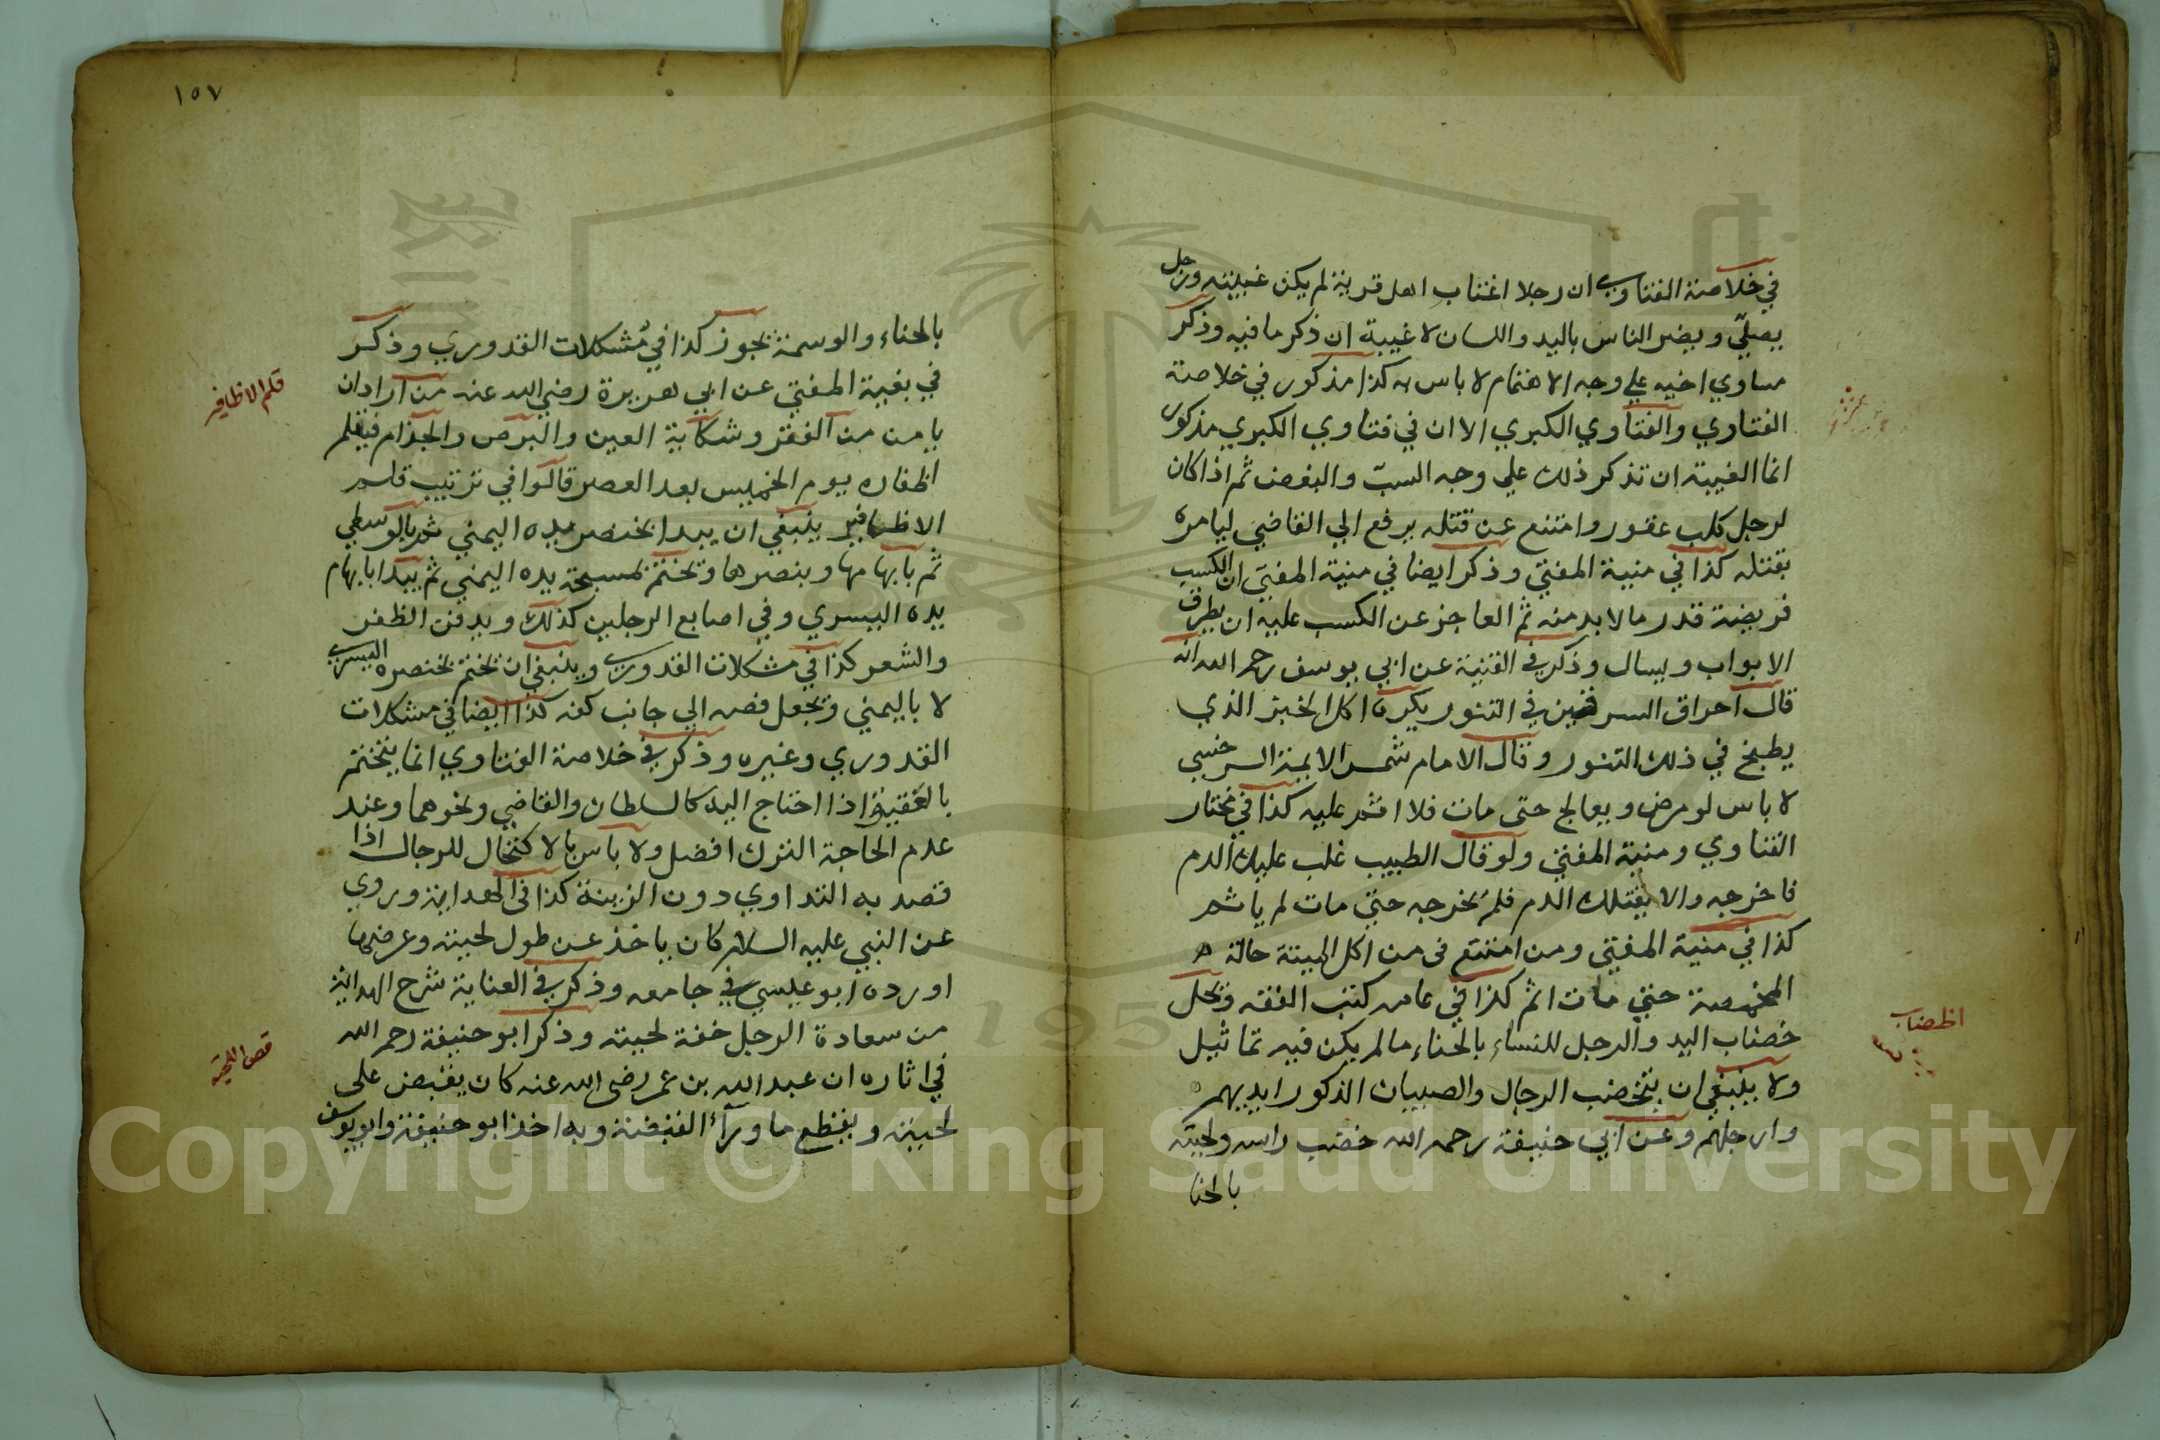 في خلاصة الفتاوي ان رجلا اغتاب اهل قرية لم يكن غيبته ورجل
يصلي ويضر الناس باليد واللسان لا غيبة ان ذكر ما فيه وذكر
مساوي اخيه علي وجه الاهتمام لا باس به كذا مذكور في خلاصة
الفتاوي والفتاوي الكبري الا ان في فتاوي الكبري مذكور
انما الغيبة ان تذكر ذلك علي وجه السبّ والبغض ثم اذا كان
لرجل كلب عقور وامتنع عن قتله يرفع الي القاضي ليامره
بقتله كذا في منية المفتي وذكر ايضا في منية المفتي ان الكسب
فريضة قدر ما لا بد منه ثم العاجز عن الكسب عليه ان يطرق
الابواب ويسال وذكر في القنية عن ابي يوسف رحمه الله انه
قال احراق السرقين في التنور يكره اكل الخبز الذي
يطبخ في ذلك التنور وقال الامام شمس الايمة السرخسي
لا باس لو مرض ويعالج حتى مات فلا اثم عليه كذا في مختار
الفتاوي ومنية المفتي ولو قال الطبيب غلب عليك الدم
فاخرجه والا يقتلك الدم فلم يخرجه حتي مات لم ياثم
كذا في منية المفتي ومن امتنع من اكل الميتة حالة
المخمصة حتي مات اثم كذا في عامه كتب الفقه ويحل
خضاب اليد والرجل للنساء بالحناء ما لم يكن فيه تماثيل
ولا ينبغي ان يتخضب الرجال والصبيان الذكور ايديهم
وارجلهم وعن ابي حنيفة رحمه الله خضب راسه ولحيته
بالحنا
الخضاب
١٥٧
بالحناء والوسمة يجوز كذا في مشكلات القدوري وذكر
في بغية المفتي عن ابي هريرة رضي الله عنه من اراد ان
يامن من الفقر وشكاية العين والبرص والجذام فيقلم
اظفاره يوم الخميس بعد العصر قالوا في ترتيب قلم
الاظافير ينبغي ان يبدا بخنصر يده اليمني ثم بالوسطي
ثم بابهامها وبنصرها وتختم بمسبحة يده اليمني ثم يبدا بابهام
يده اليسري وفي اصابع الرجلين كذلك ويدفن الظفر
والشعر كذا في مشكلات القدوري وينبغي ان تختم بخنصره اليسري
لا باليمني ويجعل فصه الي جانب كفه كذا ايضا في مشكلات
القدوري وغيره وذكر في خلاصة الفتاوي انما يتختم
بالعقيق اذا احتاج اليه كالسلطان والقاضي ونحوهما وعند
عدم الحاجة الترك افضل ولا باس بالاكتحال للرجال اذا
قصد به التداوي دون الزينة كذا في الهداية وروي
عن النبي عليه السلام كان ياخذ من طول لحيته وعرضها
اورده ابو عيسي في جامعه وذكر في العناية شرح الهداية
من سعادة الرجل خفة لحيته وذكر ابو حنيفة رحمه الله
في اثاره ان عبد الله بن عمر رضي الله عنه كان يقبض على
لحيته ويقطع ما ورآء القبضة وبه اخذ ابو حنيفة وابو يوسف
قلم الاظافير
قص اللحية
Copyright © King Saud University
195